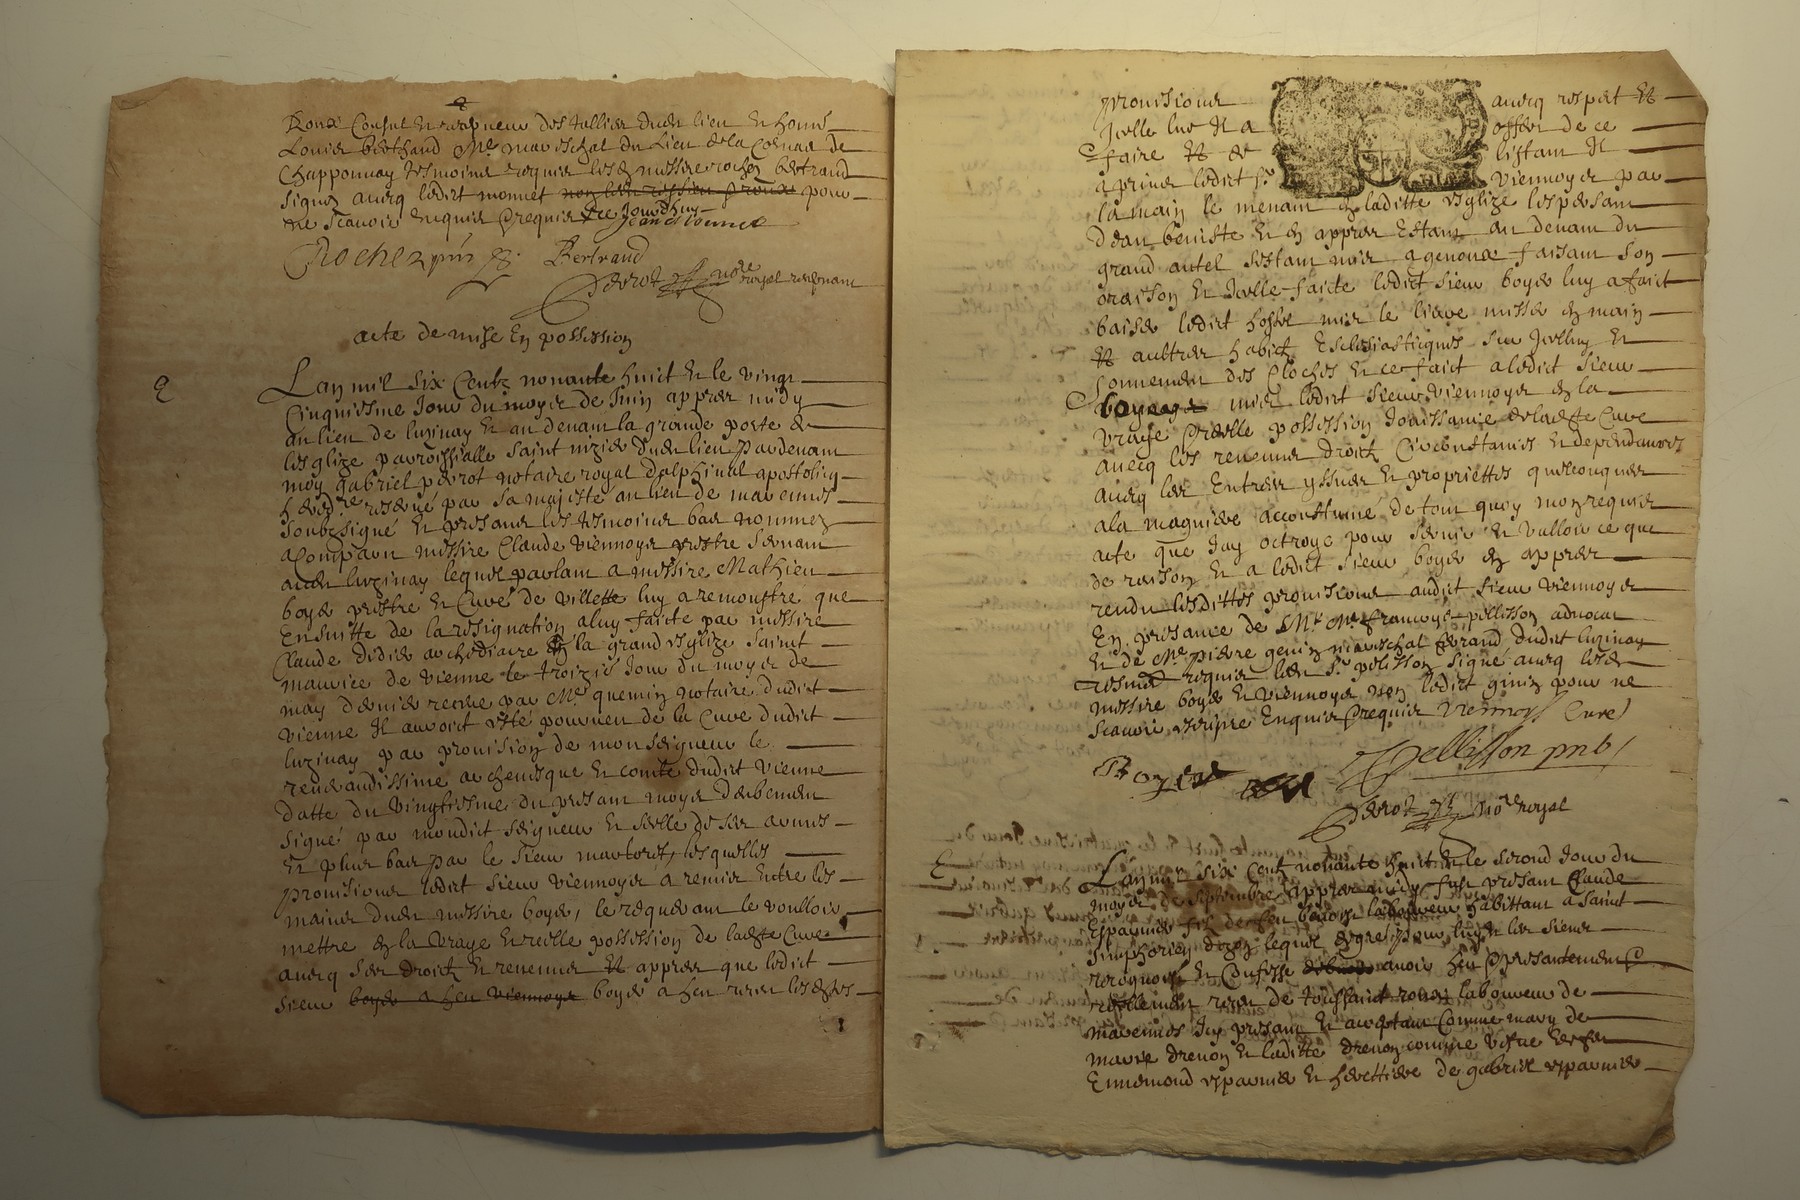 Roux Consul et recepveur des tallies dud lieu et honné
Louis berthaud Me mareschal du Lieu de la Cornas de
Chapponnay tesmoins requis led messire rochez bertrand
signez avecq ledict monnet pour
ne scavoir enquis et requis ce Jourdhuy
Jean Monnet
Rochez Bertrand
Perrot nore royal recepvant
acte de mise en possession
2 Lan mil six Centz nonante huict et le vingt
Cinquiesme Jour du moys de Juin appres midy
au lieu de luzinay et au devant la grande porte de
lesglize parroissialle saint nizier dud lieu Pardevant
moy gabriel perrot notaire royal dalphinal apostoliq
hered.re reservé par sa majesté au lieu de marennes
soubzsigné et presans les tesmoins bas nommez
a Comparu messire Claude viennoys prestre servant
aud luzinay lequel parlant a messire Mathieu
boyer prestre et Curé de villette luy a remonstre que
Ensuitte de la resignation a luy faicte par messire
Claude didier archediacre en la grand esglize saint
maurice de vienne le troizie Jour du moys de
may dernier receue par Me quemin notaire dudict
vienne Il auroit esté pourveu de la Cure dudict
luzinay par provision de monseigneur le
reverandissime archevesque et comte dudict vienne
datte du vingtiesme du presant moys deubement
signé par mondict seigneur et scellé de ses armes
et plus bas par le sieur lesquelles
provisions ledict sieur viennoys a remis entre les
mains dud messire boyer, le requerant le voulloir
mettre en la vraye et reelle possession de ladte Cure
avecq ses droictz et revenus et appres que ledict
sieur boyer a heu viennoys boyer a heu receu lesdtes
provisions avecq respect et
Icelle lue Il a offert de ce
faire et de listant Il
a prins ledict sr viennoys par
la main le menant en laditte esglize les presant
deau beniste et en appres Estant au devant du
grand autel sestant mis a genoux faisant son
oraison et Icelle faicte ledict sieur boyer luy a faict
baiser ledict hostel mis le livre misse en main
et aultres habictz Esclesiasticques sur Icelluy et
sonnement des Cloches et ce faict a ledict sieur
boyer mis ledict sieur viennoys en la
vraye et reelle possession Jouissance de ladte Cure
avecq les revenus droictz Circonstances et dependances
avecq les Entrees yssues et proprietties quelconques
a la magniere accoustumé de tout quoy mon requis
acte que Jay octroyé pour servir et valloir ce que
de raison et a ledict sieur boyer en appres
rendu lesdittes provisions audict sieur viennoys
En presance de Mr Me francoys pellisson advocat
et de Me pierre genin mareschal ferrand dudict luzinay
tesmoins requis led sr pelisson signé avecq lesd
messire boyer et viennoys non ledict ginin pour ne
scavoir escripre Enquis et requis viennoys Curé
Boyer Pellisson pnt
Perrot nore royal
2 Lan mil six Centz nonante huict et le second Jour du
moys de septembre appres midy fust presant Claude
Espaunier filz de feu benoist laboureur habittant a saint
Simphorien dozon lequel de gre pour luy et les siens
recognoist et Confesse avoir heu et presantement
reellement receu de toussaint roux laboureur de
marennes Icy presant et aceptant Comme mary de
marie drevon et laditte drevon comme vefve de feu
Ennemond espaunier et herettiere de gabriel espaunier